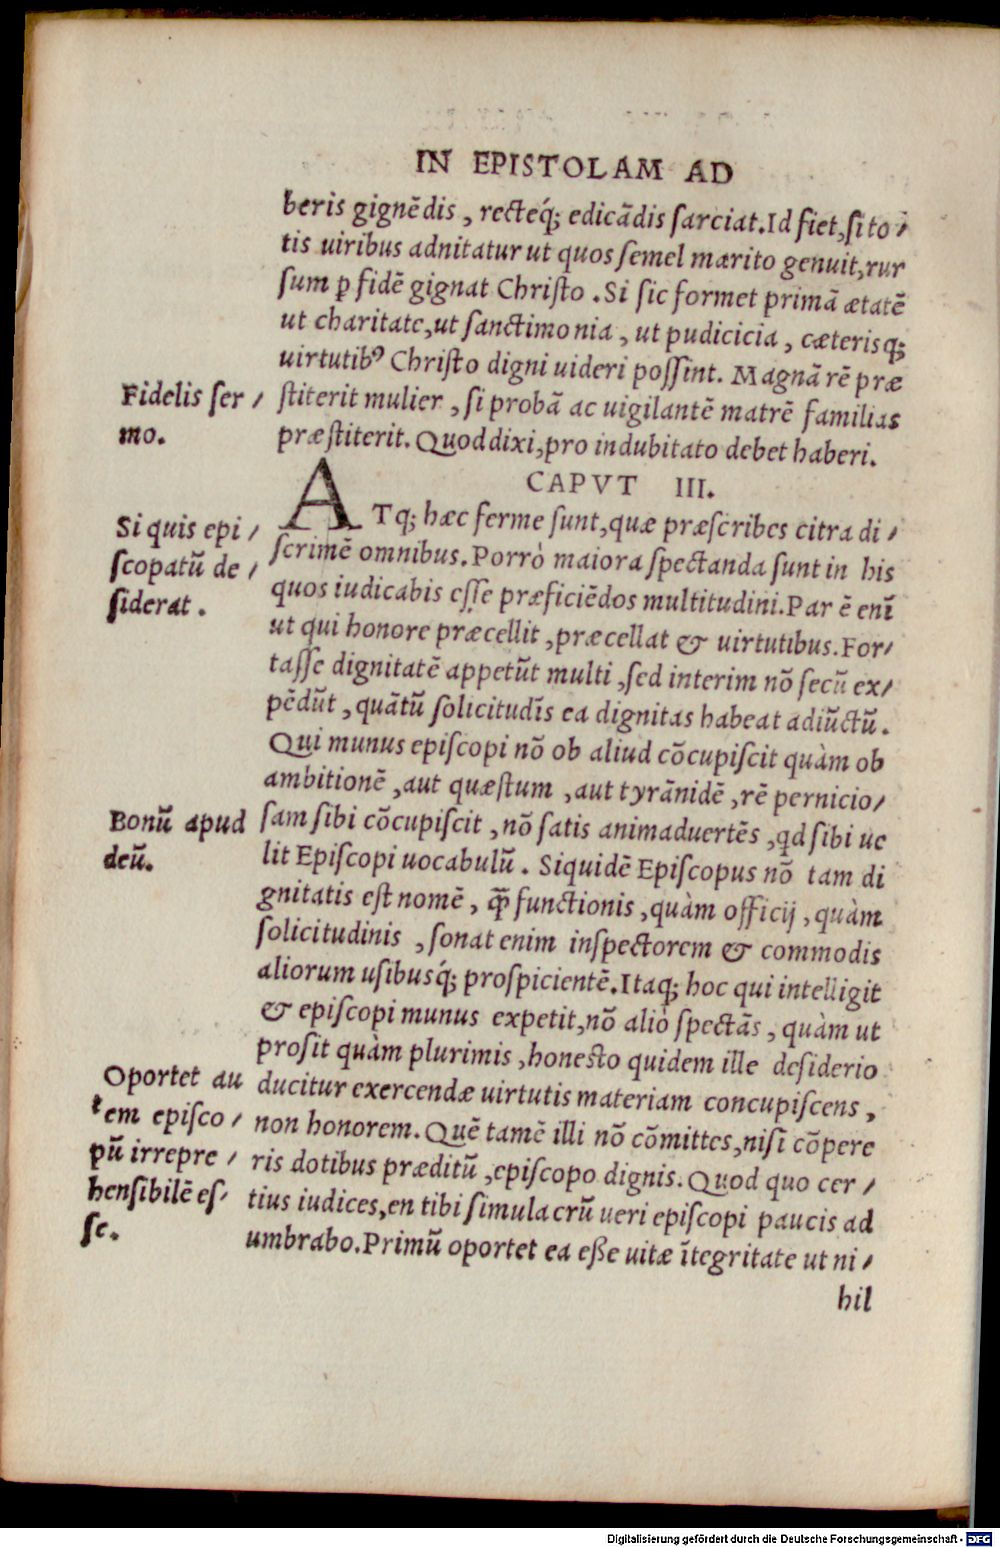 IN EPISTOLAM AD
beris gignẽdis, recteq́; edicãdis ſarciat. Id fiet, ſi to/
tis uiribus adnitatur ut quos ſemel mærito genuit, rur
ſum ꝑ fidẽ gignat Chriſto. Si ſic formet primã ætatẽ
ut charitate, ut ſanctimonia, ut pudicicia, cæterisq;
uirtutibꝰ Chriſto digni uideri poſſint. Magnã rẽ præ
Fidelis ſer/
mo.
ſtiterit mulier, ſi probã ac uigilantẽ matrẽ familias
præſtiterit. Quod dixi, pro indubitato debet haberi.
CAPVT III.
Si quis epi/
ſcopatũ de/
ſiderat.
ATq; hæc ferme ſunt, quæ præſcribes citra di/
ſcrimẽ omnibus. Porrò maiora ſpectanda ſunt in his
quos iudicabis eſſe præficiẽdos multitudini. Par ẽ enĩ
ut qui honore præcellit, præcellat & uirtutibus. For/
taſſe dignitatẽ appetũt multi, ſed interim nõ ſecũ ex/
pẽdũt, quãtũ ſolicitudĩs ea dignitas habeat adiũctũ.
Qui munus epiſcopi nõ ob aliud cõcupiſcit quàm ob
ambitionẽ, aut quæſtum, aut tyrãnidẽ, rẽ pernicio/
Bonũ apud
deũ.
ſam ſibi cõcupiſcit, nõ ſatis animaduertẽs, qd ſibi ue
lit Epiſcopi uocabulũ. Siquidẽ Epiſcopus nõ tam di
gnitatis eſt nomẽ, q̃ functionis, quàm officij, quàm
ſolicitudinis, ſonat enim inſpectorem & commodis
aliorum uſibusq́; proſpicientẽ. Itaq; hoc qui intelligit
& epiſcopi munus expetit, nõ aliò ſpectãs, quàm ut
proſit quàm plurimis, honeſto quidem ille deſiderio
Oportet au
tem epiſco/
pũ irrepre/
henſibilẽ eſ/
ſe.
ducitur exercendæ uirtutis materiam concupiſcens,
non honorem. Quẽ tamẽ illi nõ cõmittes, niſi cõpere
ris dotibus præditũ, epiſcopo dignis. Quod quo cer/
tius iudices, en tibi ſimulacrũ ueri epiſcopi paucis ad
umbrabo. Primũ oportet ea eße uitæ ĩtegritate ut ni/
hil
Digitalisierung gefördert durch die Deutsche Forschungsgemeinschaft - DFG